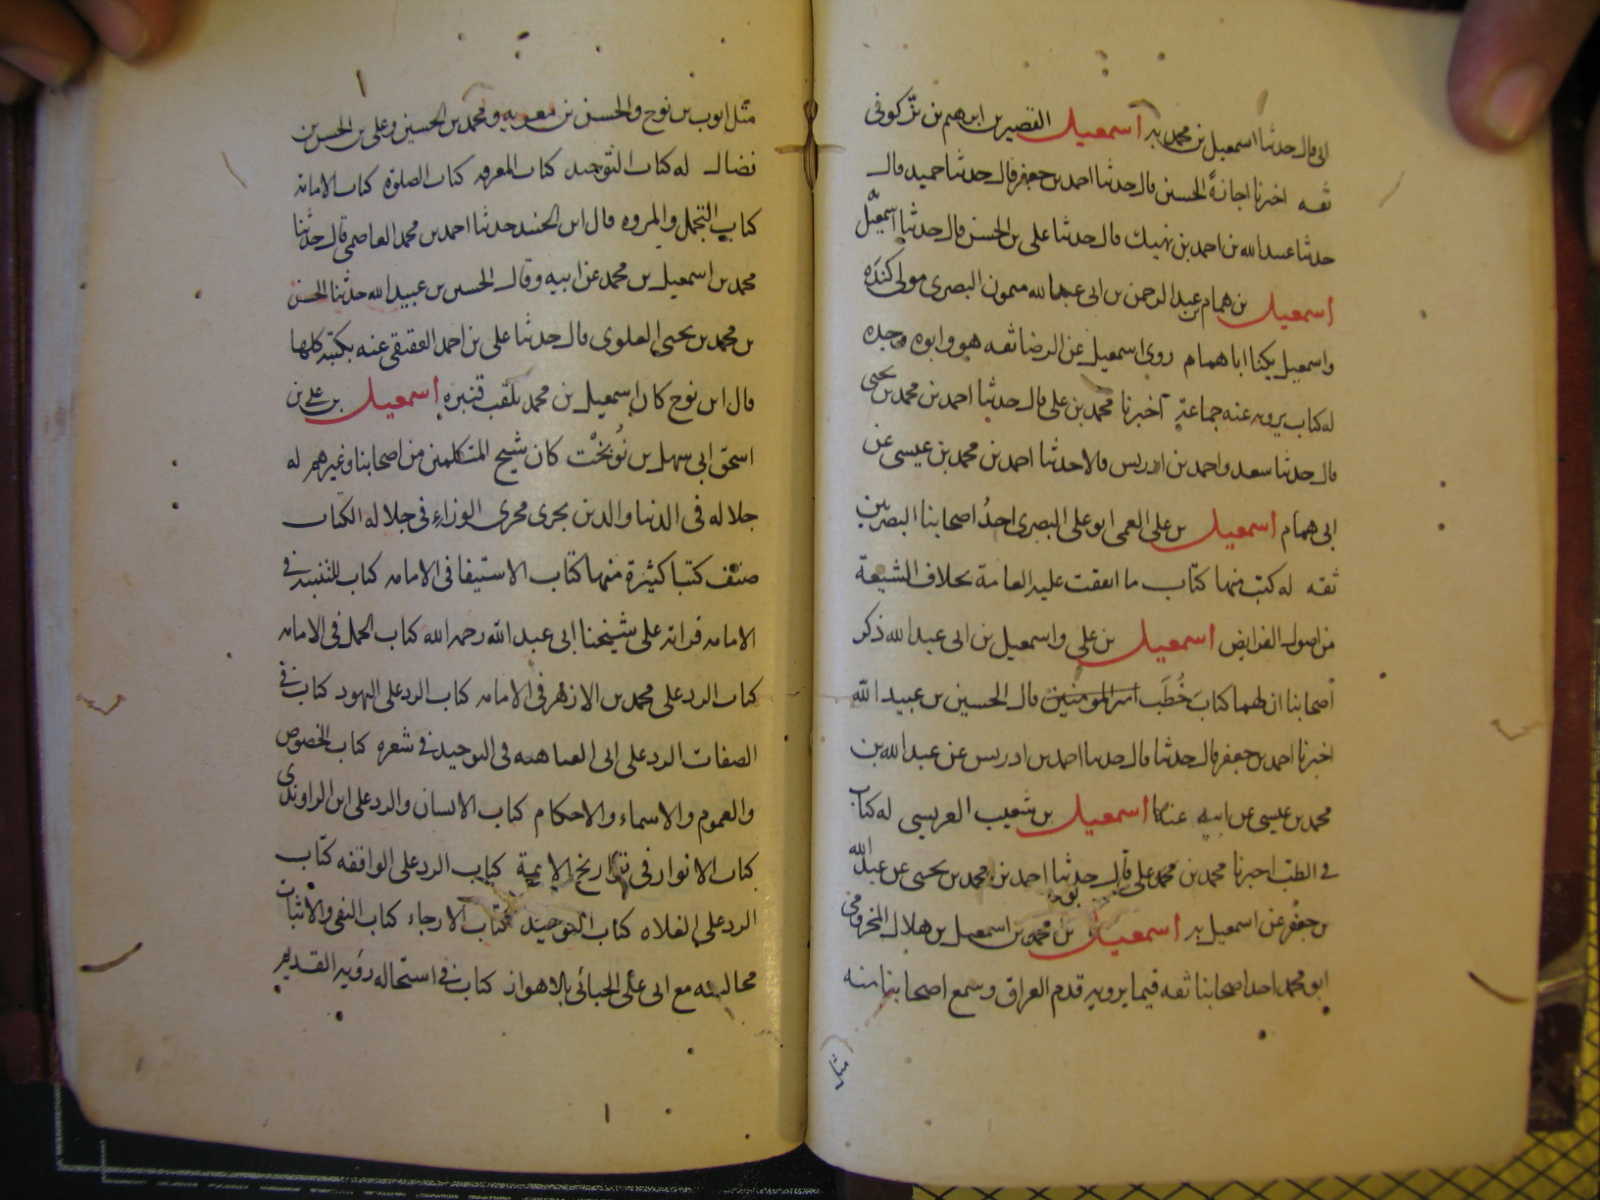 ابى قال حدثنا اسمعيل بن محمد به اسمعيل القصير بن ابرهيم بن بزّ كوفى
ثقه اخبرنا اجازةً الحسين قال حدثنا احمد بن جعفر قال حدثنا حميد قال
حدثنا عبيد الله بن احمد بن نهيك قال حدثنا على بن الحسن قال حدثنا اسمعيل
اسمعيل بن همام بن عبد الرحمن بن ابى عبد الله ميمون البصرى مولى كندة
واسمعيل يكنا ابا همام روى اسمعيل عن الرضا ثقه هو وابوه وجده
له كتاب يرويه عنه جماعة اخبرنا محمد بن على قال حدثنا احمد بن محمد بن يحيى
قال حدثنا سعد واحمد بن ادريس قالا حدثنا احمد بن محمد بن عيسى عن
ابى همام اسمعيل بن على العمى ابو على البصرى احدُ اصحابنا البصريين
ثقه له كتب منها كتاب ما اتفقت عليه العامة بخلاف الشيعة
من اصول الفرايض اسمعيل بن على واسمعيل بن ابى عبد الله ذكر
اصحابنا ان لهما كتابَ خُطَب امير المومنين قال الحسين بن عبيد الله
اخبرنا احمد بن جعفر قال حدثنا قال حدثنا احمد بن ادريس عن عبد الله بن
محمد بن عيسى عن ابيه عنهما اسمعيل بن شعيب العريسى له كتاب
فى الطب اخبرنا محمد بن محمد على قال حدثنا احمد بن محمد بن يحيى عن عبد الله
بن جعفر عن اسمعيل به اسمعيل بن محمد بن اسمعيل بن هلال المخزومى
ابو محمد احد اصحابنا ثقه فيما يرويه قدم العراق وسمع اصحابنا منه
مثل
مثل ايوب بن نوح والحسن بن معويه ومحمد بن الحسين وعلى بن الحسن بن
فضال له كتاب التوحيد كتاب المعرفه كتاب الصلوة كتاب الامامة
كتاب التجمل والمروه قال ابن الجنيد حدثنا احمد بن محمد العاصمى قال حدثنا
محمد بن اسمعيل بن محمد عن ابيه وقال الحسين بن عبيد الله حدثنا الحسن
بن محمد بن يحيى العلوى قال حدثنا على بن احمد العقيقى عنه بكتبه كلها
قال ابن نوح كان اسمعيل بن محمد يلقب قنبره اسمعيل بن على بن
اسحق ابى سهل بن نُوبَخْت كان شيخ المتكلمين من اصحابنا وغيرهم له
جلاله فى الدنيا والدين يجرى مجرى الوزراء فى جلاله الكتاب
صنّف كتبا كثيرة منها كتاب الاستيفا فى الامامه كتاب للتنبيه فى
الامامه قراته على شيخنا ابى عبد الله رحمه الله كتاب الجمل فى الامامه
كتاب الرد على محمد بن الازهر فى الامامه كتاب الرد على اليهود كتاب فى
الصفات الرد على ابى العتاهيه فى التوحيد فى شعره كتاب الخصوص
والعموم والاسماء والاحكام كتاب الانسان والرد على ابن الراوندى
كتاب الانوار فى تواريخ الايمة كتاب الرد على الواقفه كتاب
الرد على الغلاه كتاب التوحيد كتاب الارجاء كتاب النفى والاثبات
مجالسه مع ابى على الجبائى بالاهواز كتاب فى استحاله رؤيه القديم